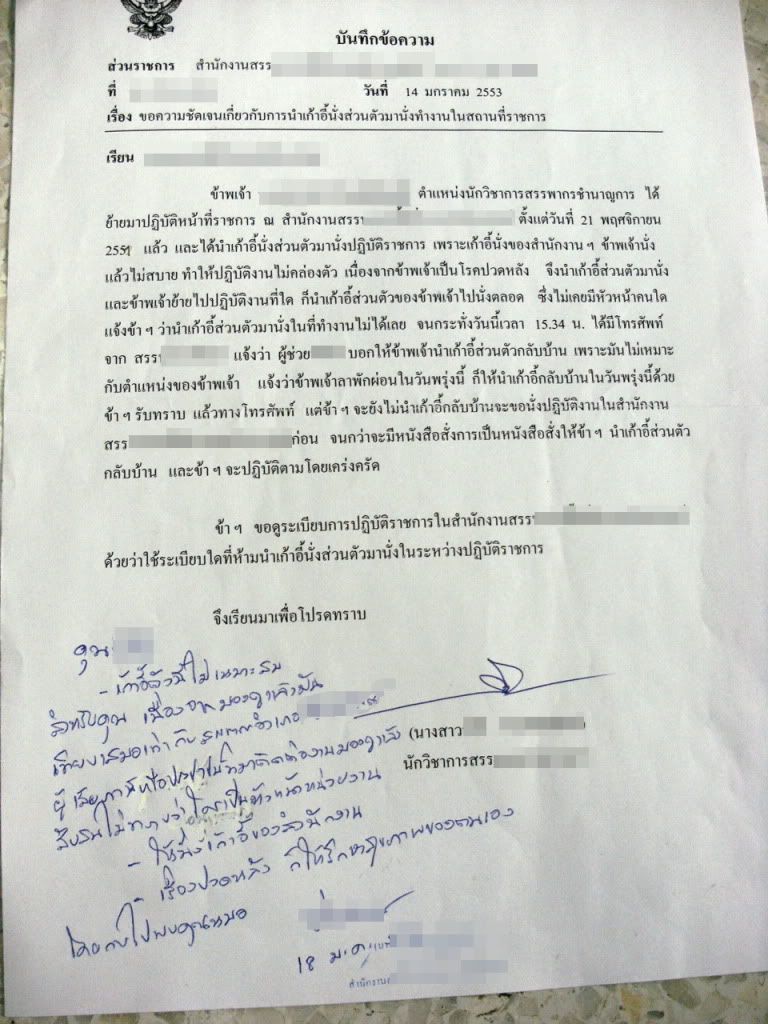 บันทึกข้อความ
ส่วนราชการ สำนักงานสรร
ที่ วันที่ 14 มกราคม 2553
เรื่อง ขอความชัดเจนเกี่ยวกับการนำเก้าอี้นั่งส่วนตัวมานั่งทำงานในสถานที่ราชการ
เรียน
ข้าพเจ้า ตำแหน่งนักวิชาการสรรพากรชำนาญการ ได้
ย้ายมาปฏิบัติหน้าที่ราชการ ณ สำนักงานสรร ตั้งแต่วันที่ 21 พฤศจิกายน
2551 แล้ว และได้นำเก้าอี้นั่งส่วนตัวมานั่งปฏิบัติราชการ เพราะเก้าอี้นั่งของสำนักงาน ฯ ข้าพเจ้านั่ง
แล้วไม่สบาย ทำให้ปฏิบัติงานไม่คล่องตัว เนื่องจากข้าพเจ้าเป็นโรคปวดหลัง จึงนำเก้าอี้ส่วนตัวมานั่ง
และข้าพเจ้าย้ายไปปฏิบัติงานที่ใด ก็นำเก้าอี้ส่วนตัวของข้าพเจ้าไปนั่งตลอด ซึ่งไม่เคยมีหัวหน้าคนใด
แจ้งข้า ฯ ว่านำเก้าอี้ส่วนตัวมานั่งในที่ทำงานไม่ได้เลย จนกระทั่งวันนี้เวลา 15.34 น. ได้มีโทรศัพท์
จาก สรร แจ้งว่า ผู้ช่วย บอกให้ข้าพเจ้านำเก้าอี้ส่วนตัวกลับบ้าน เพราะมันไม่เหมาะ
กับตำแหน่งของข้าพเจ้า แจ้งว่าข้าพเจ้าลาพักผ่อนในวันพรุ่งนี้ ก็ให้นำเก้าอี้กลับบ้านในวันพรุ่งนี้ด้วย
ข้า ฯ รับทราบ แล้วทางโทรศัพท์ แต่ข้า ฯ จะยังไม่นำเก้าอี้กลับบ้านจะขอนั่งปฏิบัติงานในสำนักงาน
สรร ก่อน จนกว่าจะมีหนังสือสั่งการเป็นหนังสือสั่งให้ข้า ฯ นำเก้าอี้ส่วนตัว
กลับบ้าน และข้า ฯ จะปฏิบัติตามโดยเคร่งครัด
ข้า ฯ ขอดูระเบียบการปฏิบัติราชการในสำนักงานสรร
ด้วยว่าใช้ระเบียบใดที่ห้ามนำเก้าอี้นั่งส่วนตัวมานั่งในระหว่างปฏิบัติราชการ
จึงเรียนมาเพื่อโปรดทราบ
คุณ
- เก้าอี้ตัวนี้ไม่เหมาะสม
สำหรับคุณ เนื่องจากมองดูแล้วมัน
เทียบเสมอเท่ากับสรรพากรอำเภอ
ผู้เสียภาษีหรือประชาชนที่มาติดต่องานมองดูแล้ว
สับสนไม่ทราบว่าใครเป็นหัวหน้าหน่วยงาน
- ให้นั่งเก้าอี้ของสำนักงาน
เรื่องปวดหลัง ก็ให้รักษาสุขภาพของตนเอง
โดยกลับไปพบคุณหมอ
(นางสาว
นักวิชาการสรร
18 ม.ค.
สำนักงาน